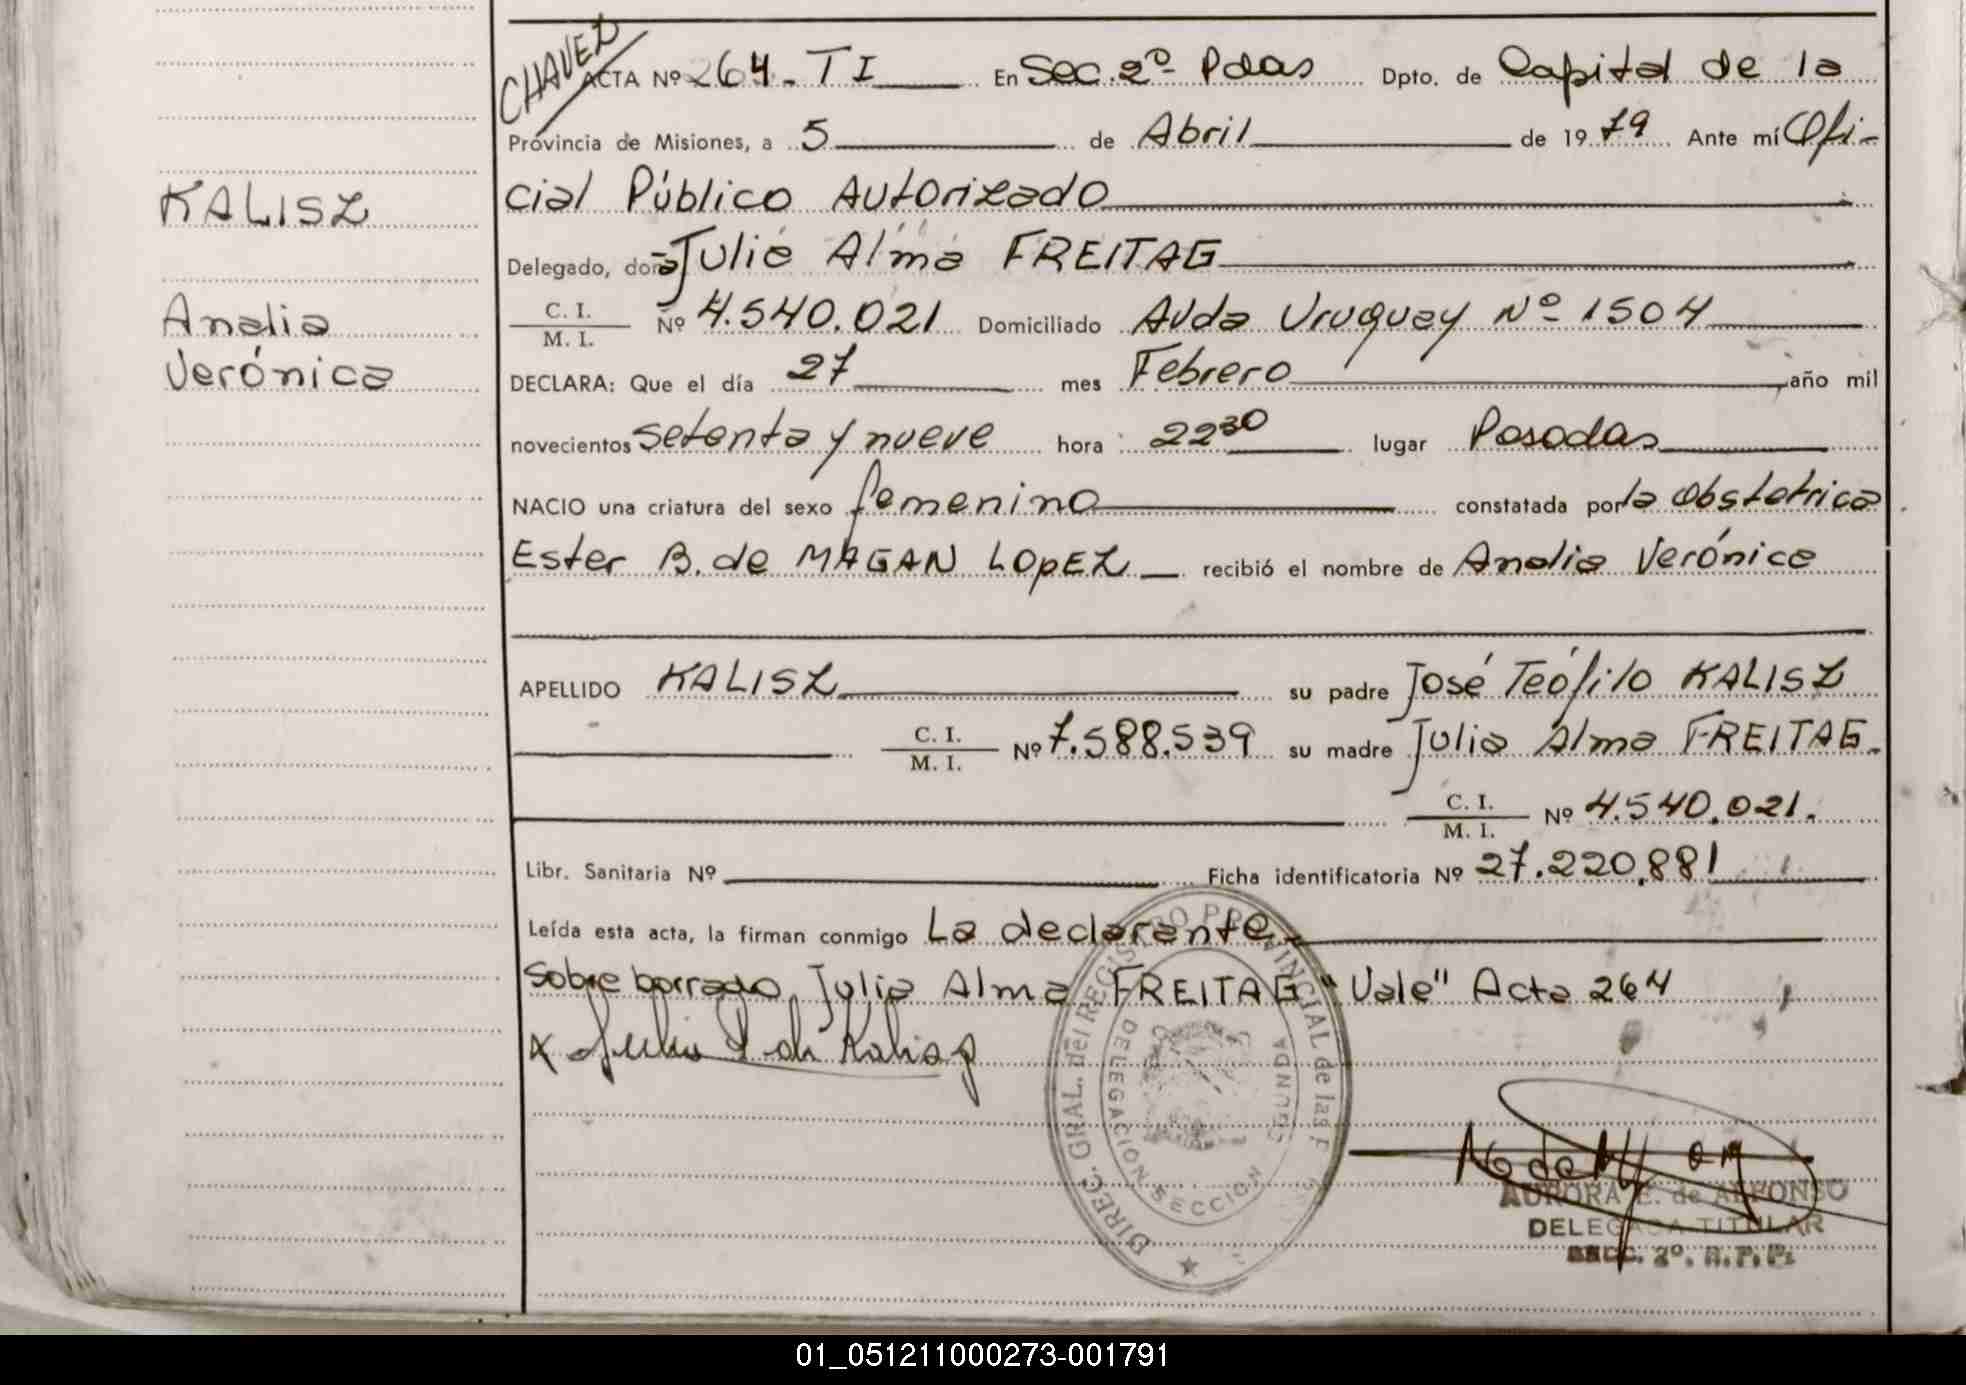 CHAVEZ
ACTA Nº 264 - T I En Sec. 2º Pdas Dpto. de Capital de la
Provincia de Misiones, a 5 de Abril de 1979 Ante mí Ofi-
cial Público Autorizado
KALISZ
Delegado, doña Julia Alma FREITAG
C. I.
M. I.
Nº 4.540.021 Domiciliado Avda Uruguay Nº 1504
Analia
Verónica
DECLARA: Que el día 27 mes Febrero año mil
novecientos setenta y nueve hora 22 30 lugar Posadas
NACIO una criatura del sexo femenino constatada por la obstetrica
Ester B. de MAGAN LOpEZ recibió el nombre de Analia Verónica
APELLIDO KALISZ su padre José Teófilo KALISZ
C. I.
M. I.
Nº 7.588.539 su madre Julia Alma FREITAG.
C. I.
M. I.
Nº 4.540.021.
Libr. Sanitaria Nº Ficha identificatoria Nº 27.220.881
Leída esta acta, la firman conmigo La declarante.
Sobre borrado Julia Alma FREITAG "Vale" Acta 264
x Julia F de Kalisz
DIREC. GRAL. del REGISTRO PROVINCIAL de las
DELEGACION SECCION SEGUNDA
AURORA E. de ALFONSO
DELEGADA TITULAR
SECC. 2º. R. P. P.
01_051211000273-001791